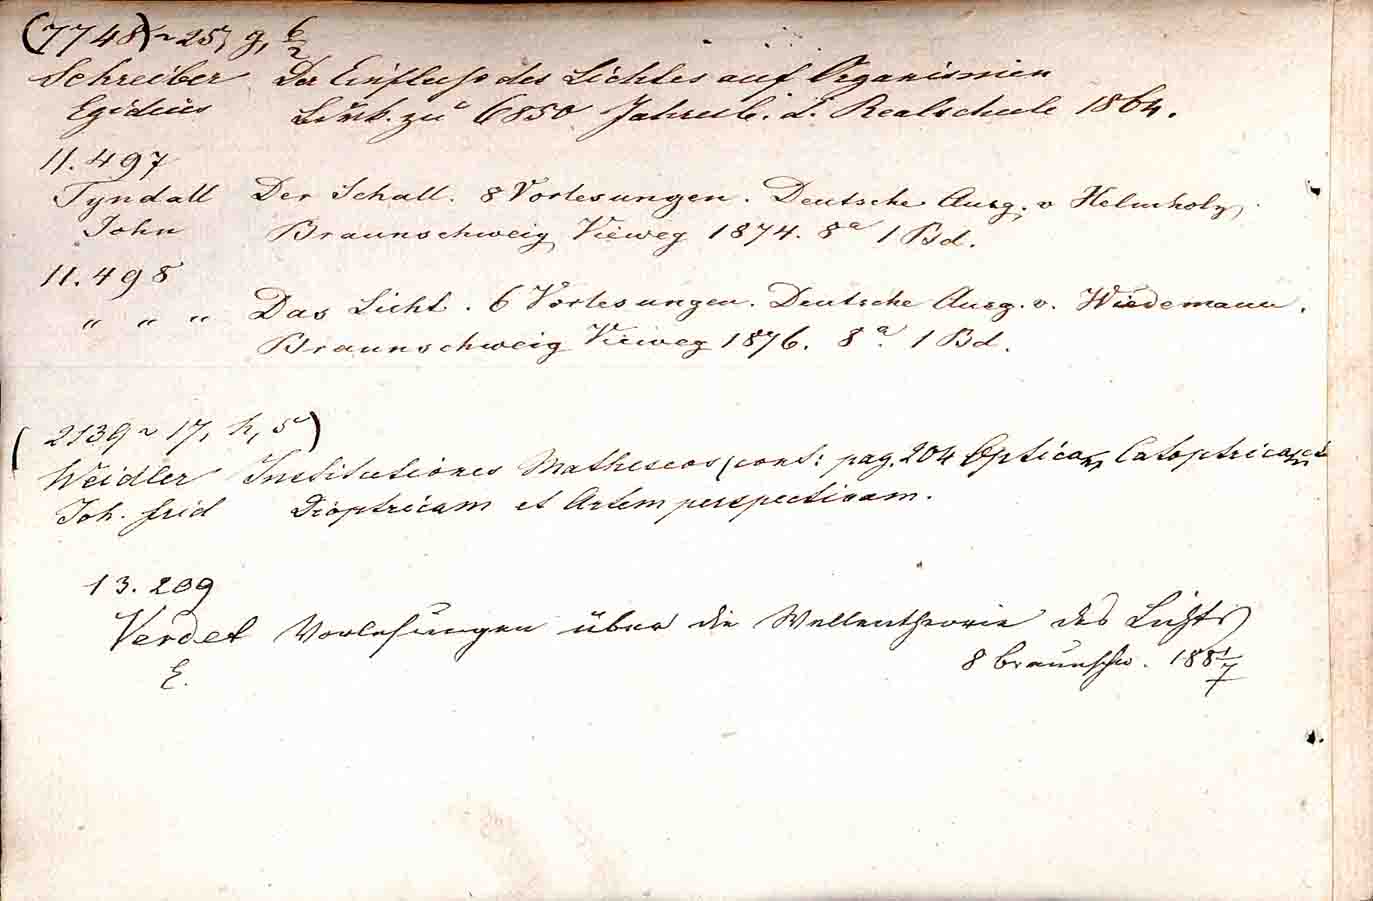 (7748) ~ 25, g, 6/2
Schreiber Der Einfluss des Lichtes auf Organismen
Egidius zu 6850 Jahresb. d. Realschule 1864.
11.497
Tyndall Der Schall. 8 Vorlesungen. Deutsche Ausg. v Helmholz,
John Braunschweig Vieweg 1874. 8° 1 Bd.
11.498
" " " Das Licht. 6 Vorlesungen. Deutsche Ausg. v. Wiedemann.
Braunschweig Vieweg 1876. 8° 1 Bd.
(2139 ~ 17, h, 5)
Weidler Institutiones Matheseos (cont: pag. 204 Opticam Catoptricam et
Joh. frid Dioptricam et Artem perspectivam.
13.209
Verdet Vorlesungen über die Wellentheorie des Lichts
E. 8 Braunschw. 1881/7